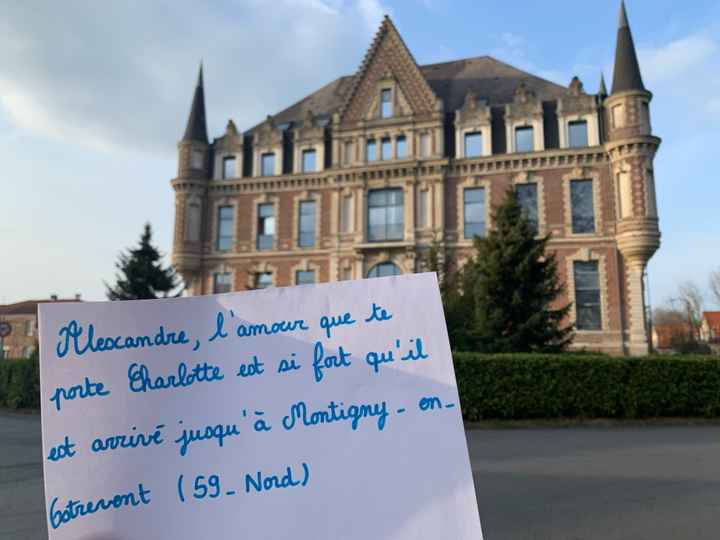 Alexandre, l'amour que te
porte Charlotte est si fort qu'il
est arrivé jusqu'à Montigny-en-
Ostrevent (59-Nord)